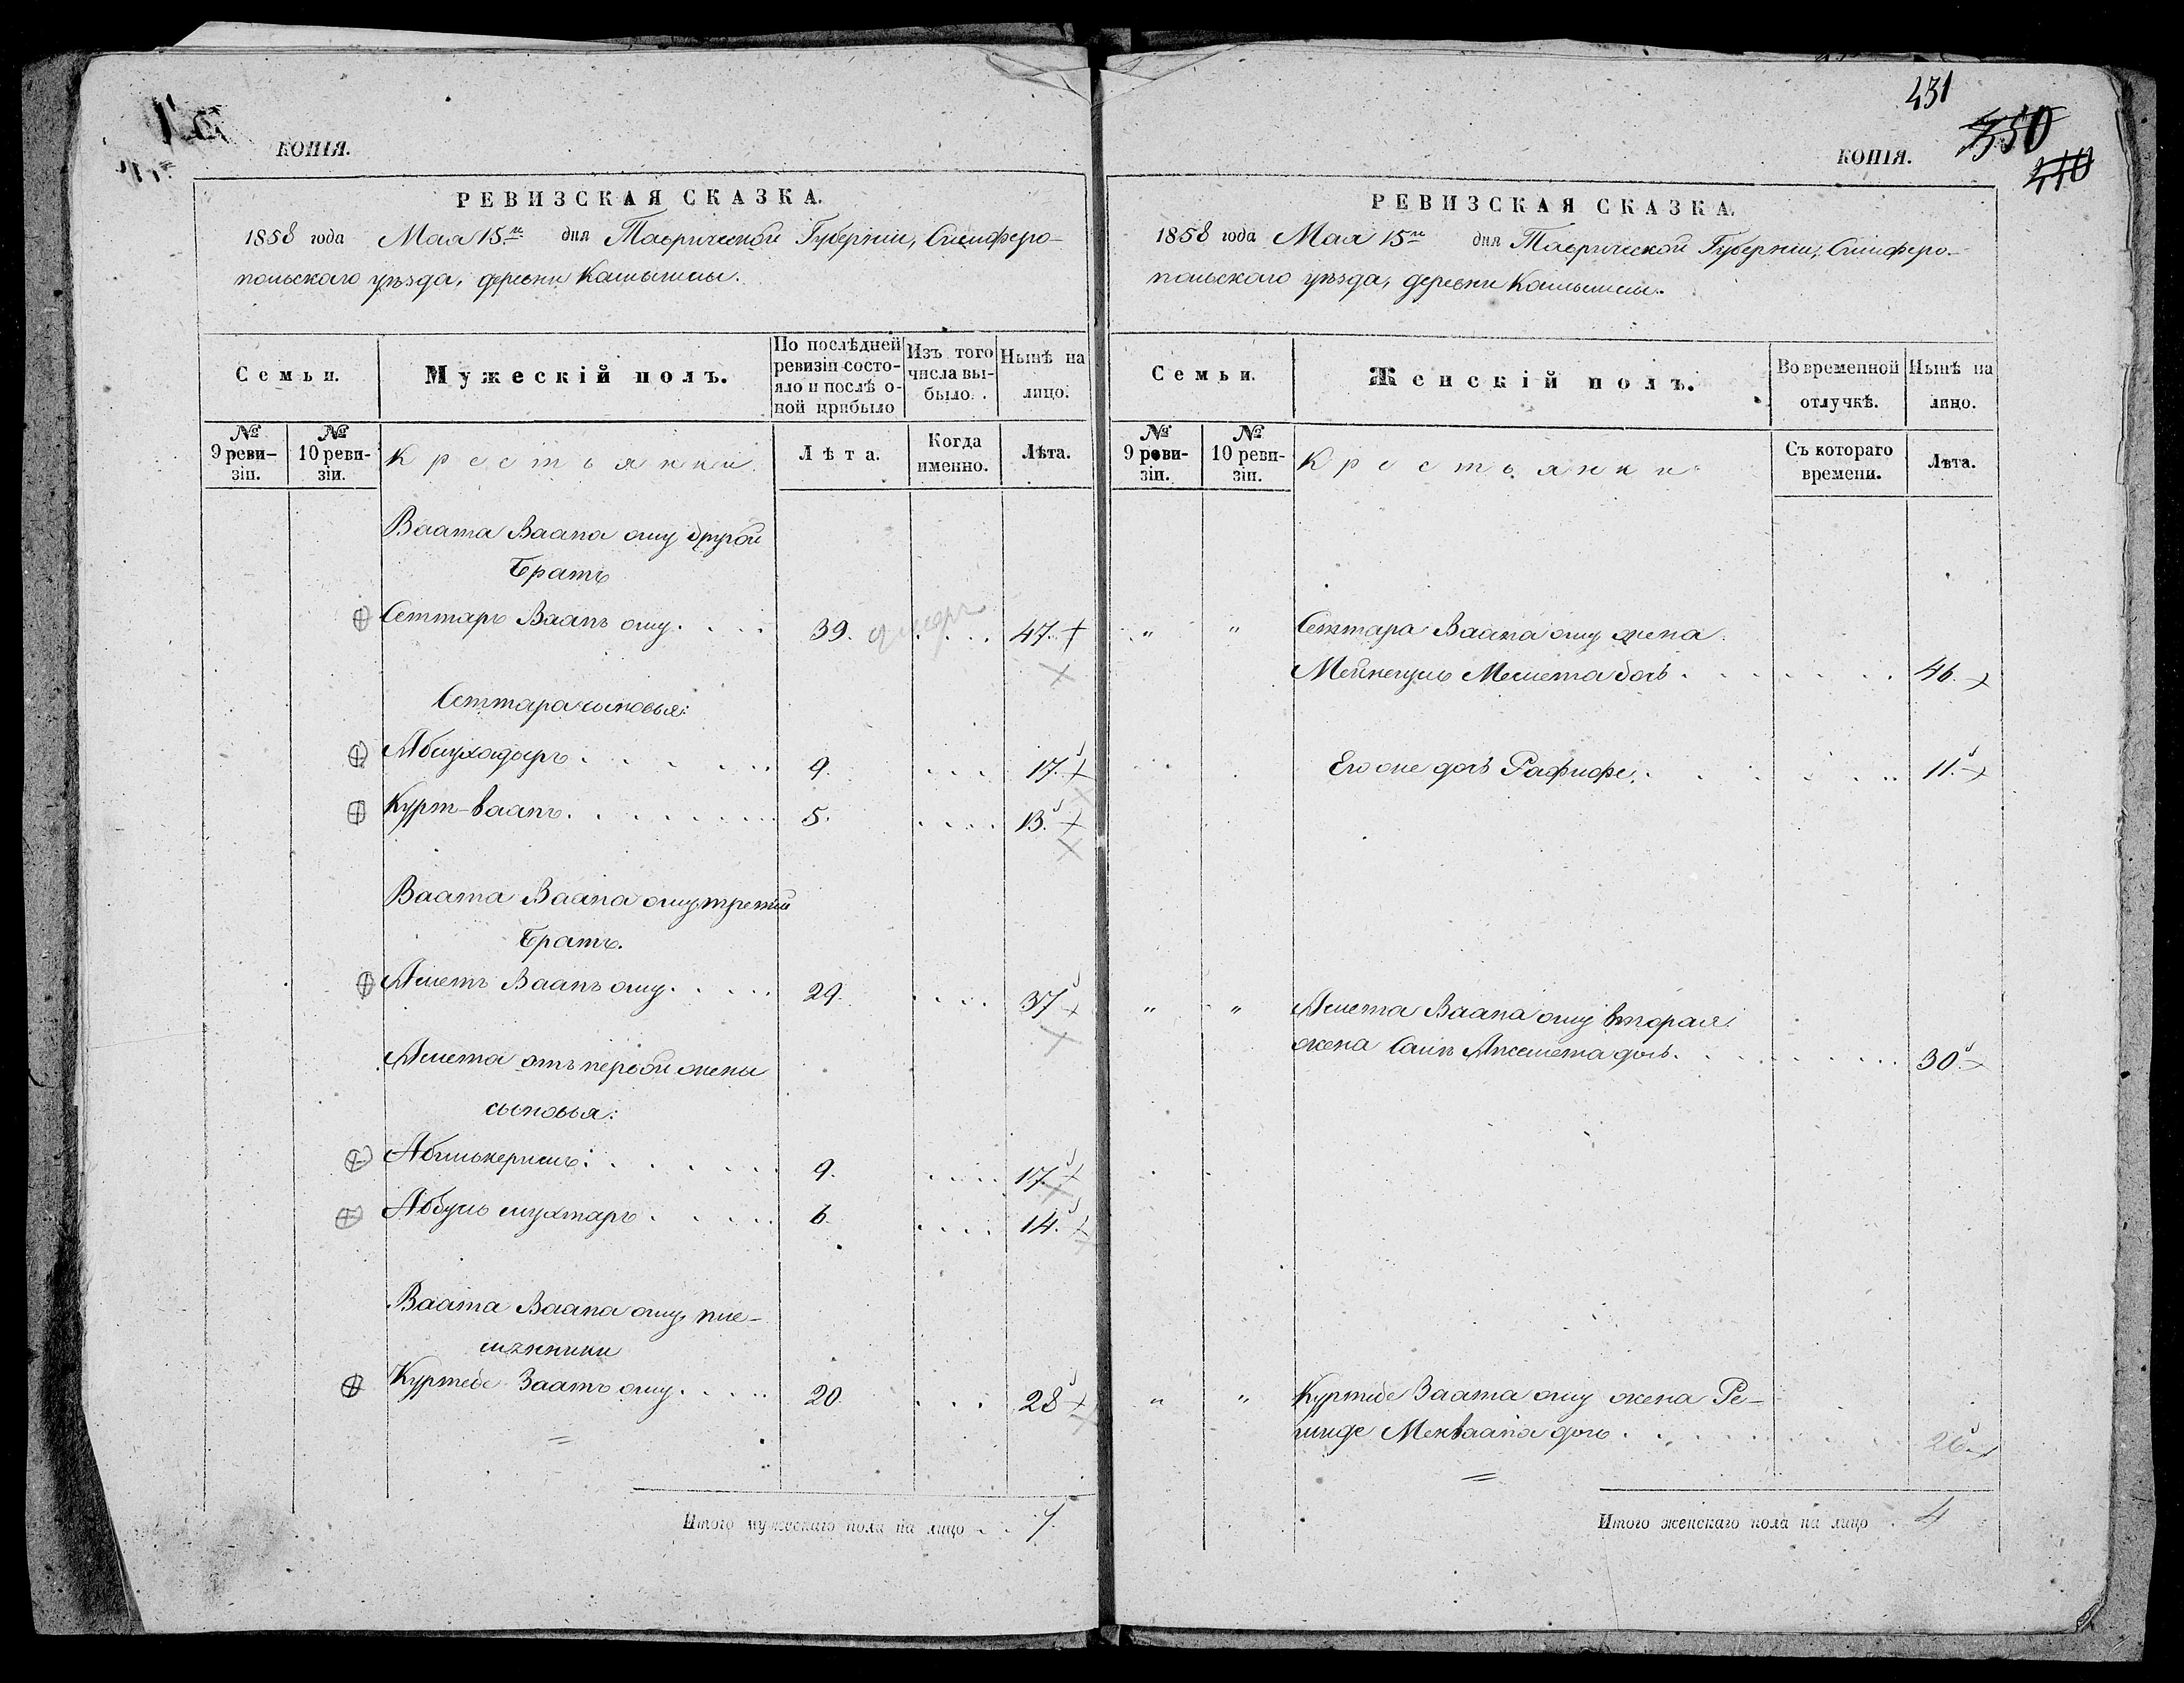 КОПІЯ.
РЕВИЗСКАЯ СКАЗКА.
1858 года Мая 15го дня Таврической Губерніи, Симферо-
польскаго уѣзда, деревни
Семьи.
Мужескій полъ.
По послѣдней ревизіи состояло и послѣ оной прибыло
Изъ того числа выбыло.
Нынѣ на лицо.
№ 9 ревизіи.
№ 10 ревизіи.
Крестьянки.
Лѣта.
Когда именно.
Лѣта.
Ваата Ваапа оглу другой
братъ
Сеттаръ Ваапъ оглу. 39. умеръ 47.
Сеттара сыновья:
Аблухадыръ 9. 17.
Курт-ваапъ. 5. 13.
Ваата Ваапа оглу третій
братъ.
Аметъ Ваапъ оглу. 29. 37
Амета отъ первой жены
сыновья:
Абилькеримъ: 9. 17.
Аббуль мухтаръ 6. 14.
Ваата Ваапа оглу, пле-
мянники
Куртеде Заатъ оглу. 20. 28
=
Итого мужескаго пола на лицо 7.
431
350
410
КОПІЯ.
РЕВИЗСКАЯ СКАЗКА.
1858 года Мая 15го дня Таврической Губерніи, Симферо-
польскаго уѣзда, деревни
Семьи.
Женскій полъ.
Во временной отлучкѣ.
Нынѣ на лицо.
№ 9 ревизіи.
№ 10 ревизіи.
Крестьянки.
Съ котораго времени.
Лѣта.
" " Сеттара Ваапа оглу жена
Мейнегуль Мемета дочь 46.
Его же дочь Рафифе. 11.
" " Амета Ваапа оглу вторая
жена дочь. 30.
" " Куртеде Заата оглу жена Ре-
шиде Менваапа дочь 26
=
Итого женскаго пола на лицо 4